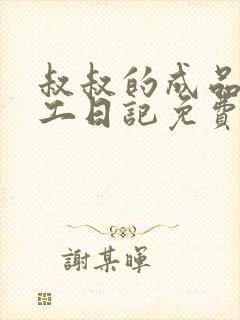 叔叔的成品
工日記免費
謝某暉